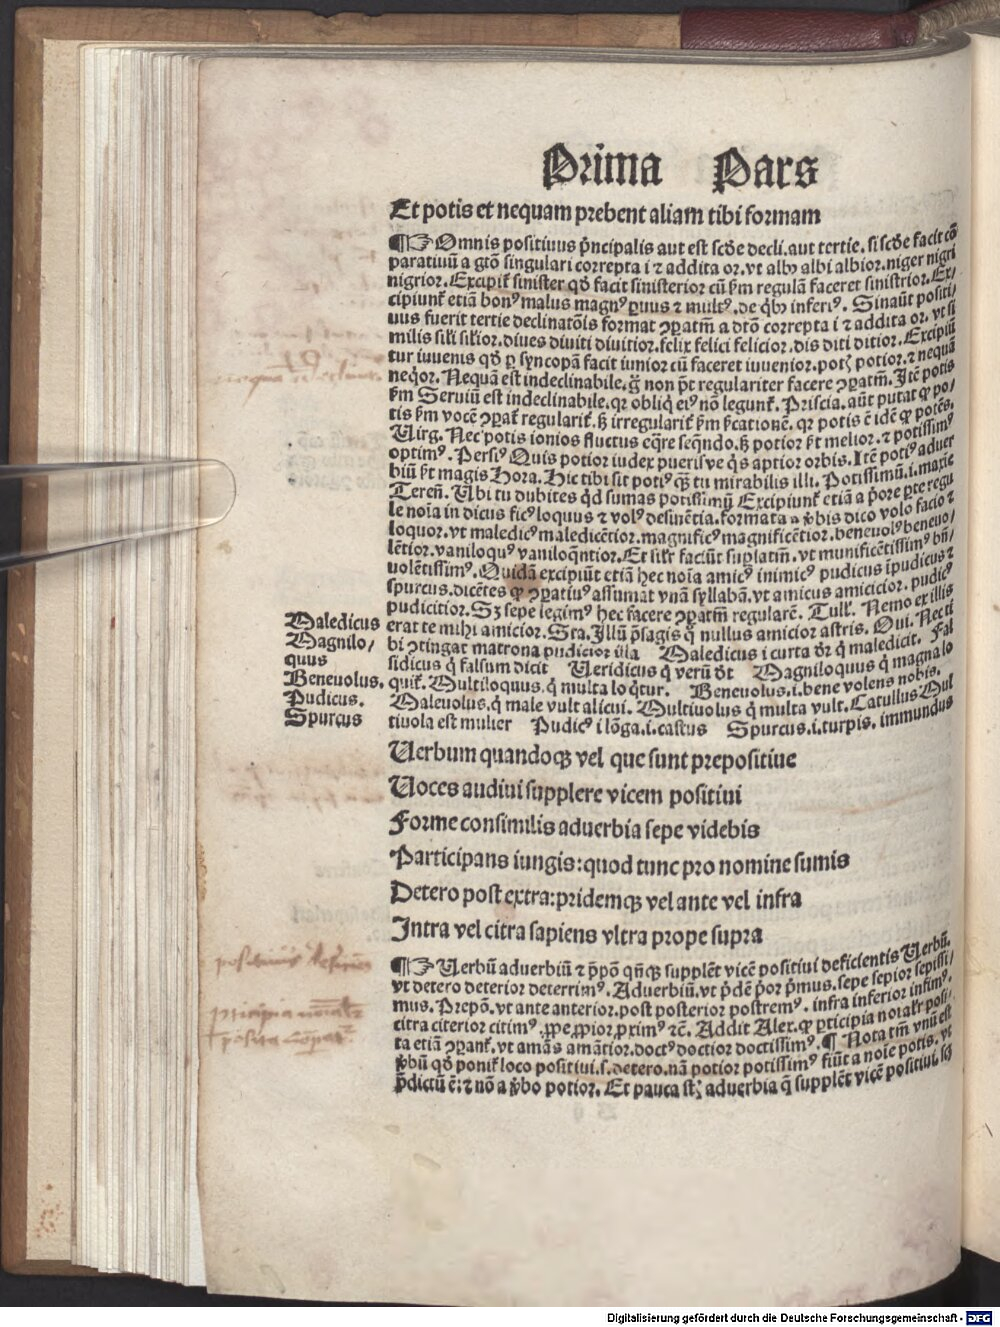 Prima Pars
Et potis et nequam prebent aliam tibi formam
¶☞Omnis positiuus p̃ncipalis aut est scd̃e decli. aut tertie. si scd̃e facit cõ
paratiuũ a gtõ singulari correpta i ⁊ addita or. vt albꝰ albi albior. niger nigri
nigrior. Excipit᷑ sinister qđ facit sinisterior cũ ẜm regulã faceret sinistrior. Ex/
cipiunt᷑ etiã bonꝰ malus magnꝰ ꝑuus ⁊ multꝰ. de q̃bꝰ inferiꝰ. Sinaũt positi/
uus fuerit tertie declinatõis format ꝯꝑatm̃ a dtõ correpta i ⁊ addita or. vt si
milis sil̃i sil̃ior. diues diuiti diuitior. felix felici felicior. dis diti ditior. Excipiũ
tur iuuenis qđ ꝑ syncopã facit iunior cũ faceret iuuenior. potꝭ potior. ⁊ nequã
neq̃or. Nequã est indeclinabile. g̃ non p̃t regulariter facere ꝯꝑatm̃. Itẽ potis
ẜm Seruiũ est indeclinabile. qꝛ obliq̃ eiꝰ nõ legunt᷑. Priscia. aũt putat ꝙ po/
tis ẜm vocẽ ꝯꝑat᷑ regularit᷑. ꝫ irregularit᷑ ẜm ẜcationẽ. qꝛ potis ẽ idẽ ꝙ potẽs.
Virg. Nec potis ionios fluctus eq̃re seq̃ndo. ꝫ potior ẜt melior. ⁊ potissimꝰ
optimꝰ. Persiꝰ Quis potior iudex puerisve q̃s aptior orbis. Itẽ potiꝰ aduer
biũ ẜt magis Hora. Hic tibi sit potiꝰ q̃ꝫ tu mirabilis illi. Potissimũ. i. maxie
Teren̄. Ubi tu dubites qđ sumas potissimũ Excipiunt᷑ etiã a p̃ore ꝑte regu
le noĩa in dicus ficꝰ loquus ⁊ volꝰ desinẽtia. formata a ꝟbis dico volo facio ⁊
loquor. vt maledicꝰ maledicẽtior. magnificꝰ magnificẽtior. beneuolꝰ beneuo/
lẽtior. vaniloquꝰ vaniloq̃ntior. Et sil̃r faciũt suꝑlatm̃. vt munificẽtissimꝰ bñ/
uolẽtissimꝰ. Quidã excipiũt etiã hec noĩa amicꝰ inimicꝰ pudicus ĩpudicus ⁊
spurcus. dicẽtes ꝙ ꝯꝑatiuꝰ assumat vnã syllabã. vt amicus amicicior. pudicꝰ
pudicitior. Sꝫ sepe legimꝰ hec facere ꝯꝑatm̃ regularẽ. Tull᷑. Nemo ex illis
erat te mihi amicior. Sta. Illũ p̃sagis q̃ nullus amicior astris. Oui. Nec ti
bi ꝯtingat matrona pudicior illa Maledicus i curta đr q̃ maledicit. Fal
sidicus q̃ falsum dicit Ueridicus q̃ verũ đt Magniloquus q̃ magna lo
quit᷑. Multiloquus. q̃ multa loq̃tur. Beneuolus. i. bene volens nobis.
Maleuolus. q̃ male vult alicui. Multiuolus q̃ multa vult. Catullus Mul
tiuola est mulier Pudicꝰ i lõga. i. castus Spurcus. i. turpis. immundus
Maledicus
Magnilo/
quus
Beneuolus.
Pudicus.
Spurcus
Uerbum quandoqꝫ vel que sunt prepositiue
Uoces audiui supplere vicem positiui
Forme consimilis aduerbia sepe videbis
Participans iungis: quod tunc pro nomine sumis
Detero post extra: pridemqꝫ vel ante vel infra
Intra vel citra sapiens vltra prope supra
¶☞Uerbũ aduerbiũ ⁊ p̃põ qñqꝫ supplẽt vicẽ positiui deficientis Uerbũ.
vt detero deterior deterrimꝰ. Aduerbiũ. vt p̃dẽ p̃or p̃mus. sepe sepior sepissi/
mus. Prepõ. vt ante anterior. post posterior postremꝰ. infra inferior infimꝰ.
citra citerior citimꝰ. ꝓpe ꝓpior ꝓximꝰ ⁊c̃. Addit Alex. ꝙ ꝑticipia notal̃r posi/
ta etiã ꝯꝑant᷑. vt amãs amãtior. doctꝰ doctior doctissimꝰ. ¶ Nota tm̃ vnũ est
ꝟbũ qđ ponit᷑ loco positiui. s. detero. nã potior potissimꝰ fiũt a noĩe potis. vt
p̃dictũ ẽ: ⁊ nõ a ꝟbo potior. Et pauca st᷑ aduerbia q̃ supplẽt vicẽ positiui. sꝫ
Digitalisierung gefördert durch die Deutsche Forschungsgemeinschaft - DFG